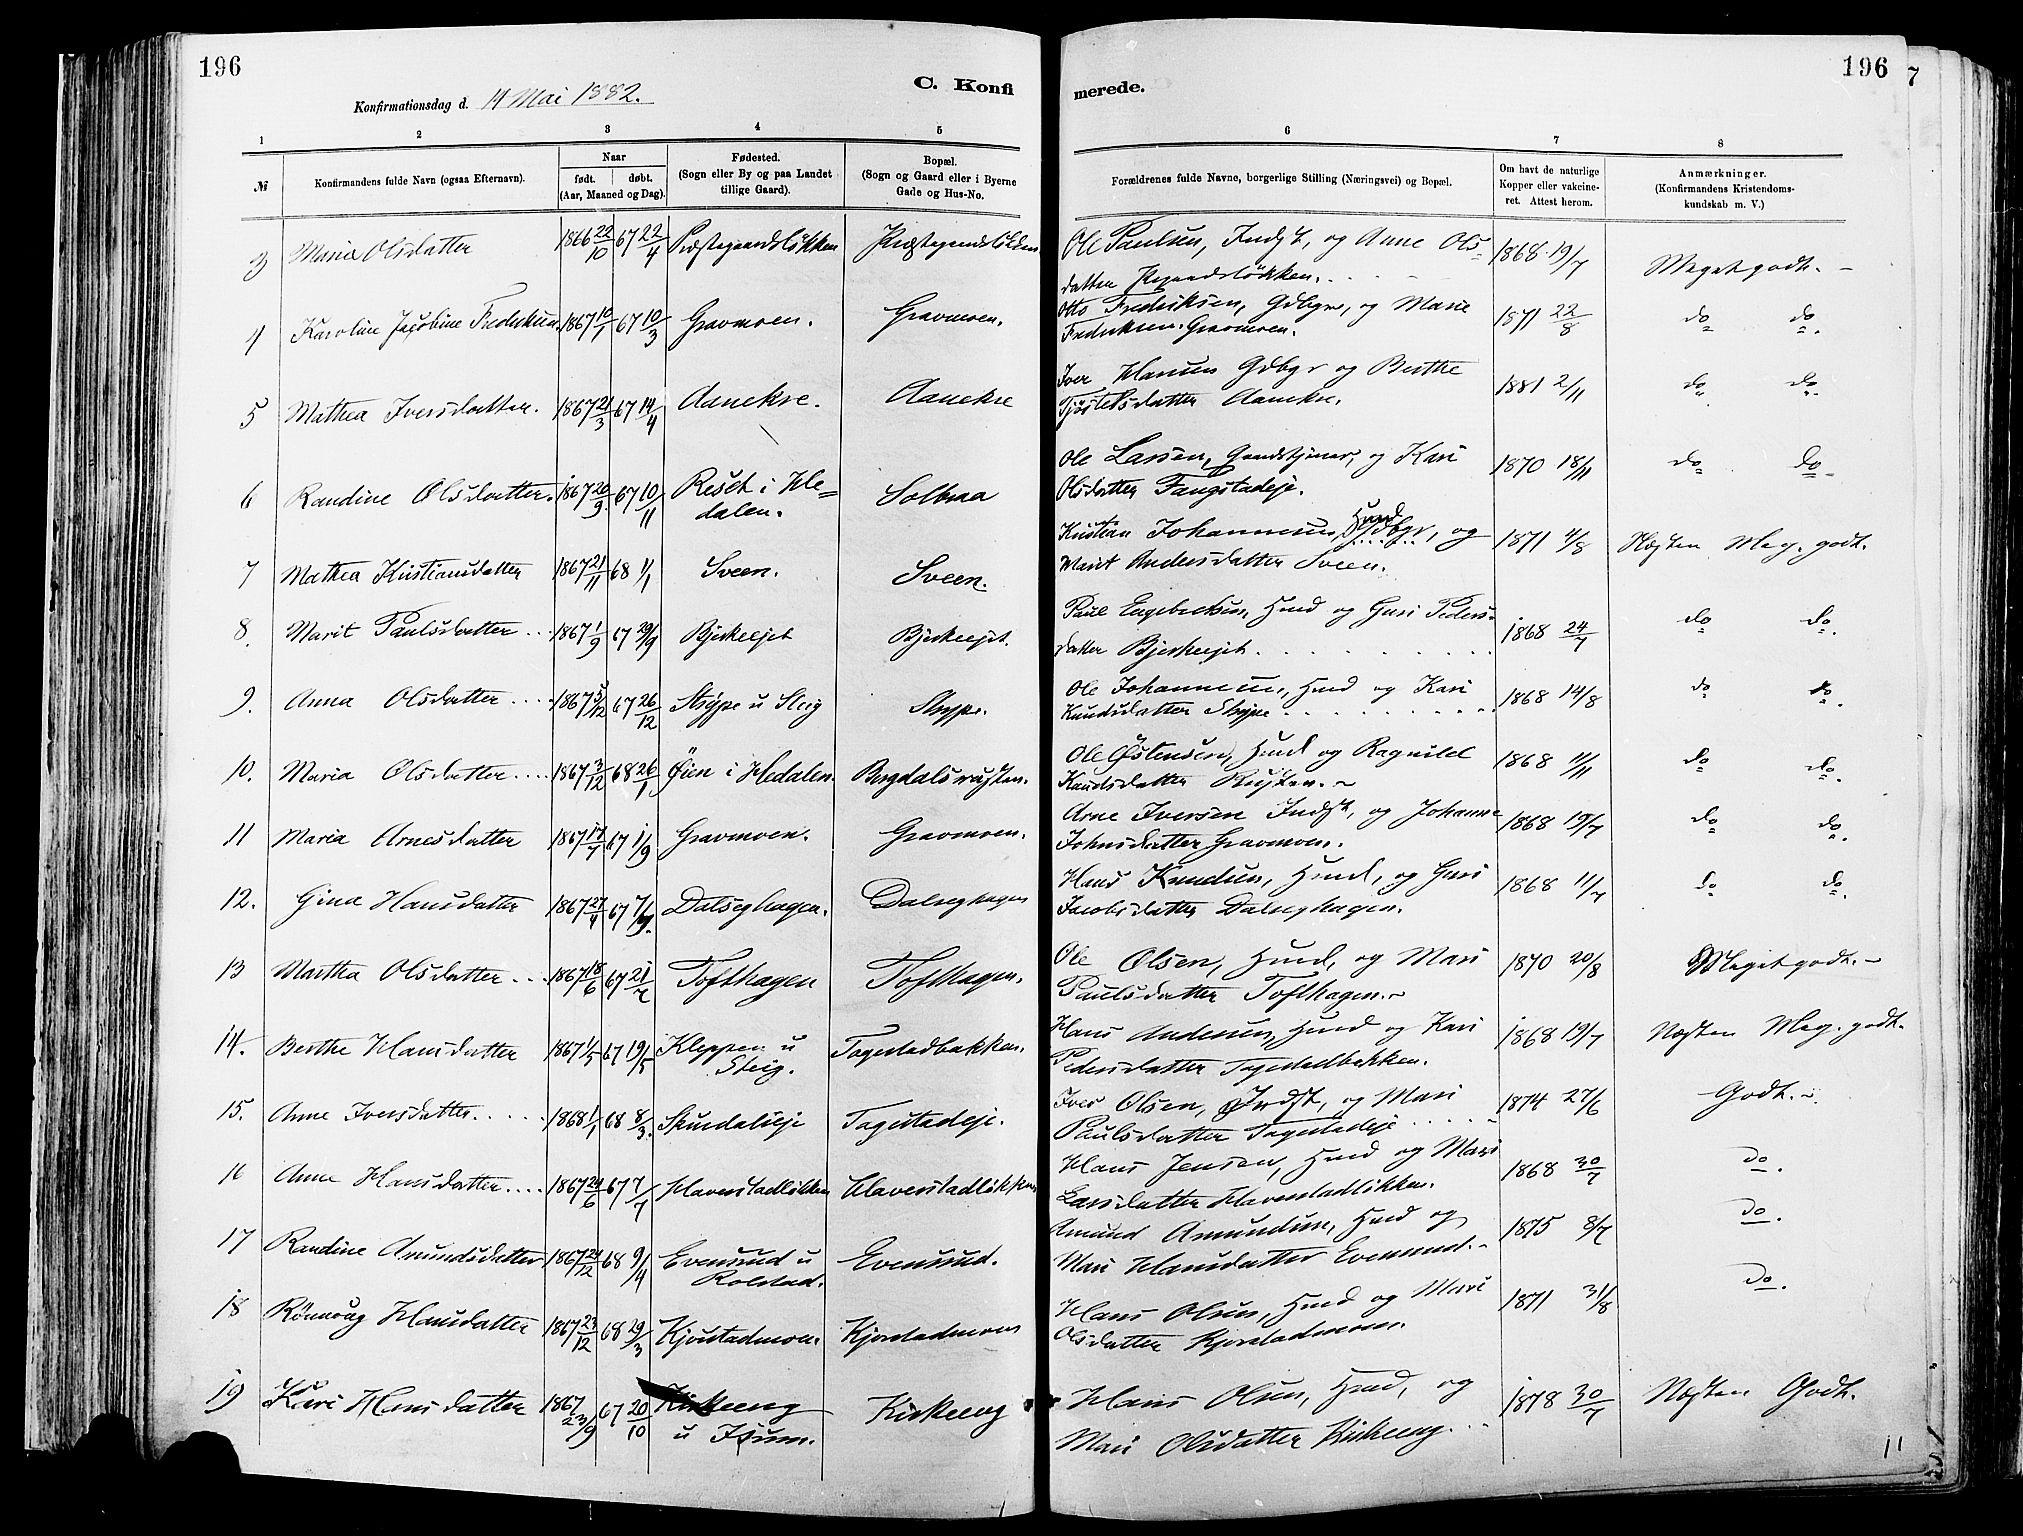 196
196
7
C. Konfi
merede.
Konfirmationsdag d. 14 Mai 1882.
1 2 3 4 5 6 7 8
№
Konfirmandens fulde Navn (ogsaa Efternavn).
Naar
født. døbt.
(Aar, Maaned og Dag).
Fødested.
(Sogn eller By og paa Landet
tillige Gaard).
Bopæl.
(Sogn og Gaard eller i Byerne
Gade og Hus-No.
Forældrenes fulde Navne, borgerlige Stilling (Næringsvei) og Bopæl.
Om havt de naturlige
Kopper eller vakcine-
ret. Attest herom.
Anmærkninger.
(Konfirmandens Kristendoms-
kundskab m. V.)
3 Maria Olsdatter 1866 22/10 67 22/4 Præstegaardsløkken Præstegaardsløkken Ole Paulsen, Indst, og Anne Ols-
datter Prgaardsløkken. 1868 19/7 Meget godt. -
4 Karoline Jacobine Frederiksen 1867 10/1 67 10/3 Gravmoen. Gravmoen. Otto Fredriksen, Gdbgr, og Marie
Frederiksen Gravmoen. 1871 22/8 do do.
5 Mathea Iversdatter. 1867 21/3 67 14/4 Aanekre. Aanekre Iver Hansen Gdbgr og Berthe
Tjøstelsdatter Aanekre. 1881 2/11 do do.
6 Randine Olsdatter. 1867 20/9 67 10/11 Reset i He=
dalen. Solbraa Ole Larsen, Gaardstjener, og Kari
Olsdatter Fangstadeje. 1870 18/11 do do
7 Mathea Kristiansdatter 1867 21/11 68 1/1 Sveen. Sveen. Kristian Johannesen, Hmd Gdbgr, og
Marit Andersdatter Sveen. 1871 4/8 Næsten Meg. godt.
8. Marit Paulsdatter 1867 1/9 67 29/9 Bjerkeejet Bjerkeejet. Paul Engebretsen, Hmd og Guri Peders-
datter Bjerkeejet 1868 24/7 do do.
9. Anna Olsdatter 1867 5/12 67 26/12 Strype u Steig Strype. Ole Johannesen, Hmd og Kari
Knudsdatter Strype 1868 14/8 do do.
10. Maria Olsdatter 1867 3/12 68 26/1 Øien i Hedalen. Bergdalsrusten. Ole Østensen, Hmd og Ragnild
Knudsdatter Rusten. 1868 11/11 do do.
11 Maria Arnesdatter 1867 17/7 67 1/9 Gravmoen. Gravmoen. Arne Iversen Indst, og Johanne
Johnsdatter Gravmoen. 1868 19/7 do do.
12. Gina Hansdatter 1867 27/4 67 7/9. Dalseghagen. Dalseghagen Hans Knudsen, Hmd, og Guri
Jacobsdatter Dalseghagen. 1868 11/7 do do.
13 Martha Olsdatter 1867 18/6 67 21/7 Tofthagen Tofthagen. Ole Olsen, Hmd, og Mari
Paulsdatter Tofthagen. 1870 20/8 Meget godt. -
14. Berthe Hansdatter 1867 1/5 67 19/5 Kleppen u
Steig. Tagestadbakken. Hans Andersen, Hmd og Kari
Pedersdatter Tagestadbakken. 1868 19/7 Næsten Meg. godt.
15. Anne Iversdatter. 1868 1/1 68 8/3. Skurdaleje Tagestadeje. Iver Olsen, Indst, og Mari
Paulsdatter Tagestadeje 1874 27/6 Godt.
16 Anne Hansdatter 1867 24/6 67 7/7 Haverstadløkken Haverstadløkken Hans Jensen, Hmd og Mari
Larsdatter Haverstadløkken. 1868 30/7 do.
17 Randine Amundsdatter 1867 24/12 68 9/4 Evensrud u
Rolstad. Evensrud. Amund Amundsen, Hmd og
Mari Hansdatter Evensrud. 1875 8/7 do.
18 Rønnaug Hansdatter 1867 23/12 68 29/3 Kjorstadmoen. Kjorstadmoen Hans Olsen, Hmd og Mari
Olsdatter Kjorstadmoen. 1871 31/8 do.
19 Kari Hansdatter 1867 23/9 67 20/10 Kirkeeng
u Isum. Kirkeeng Hans Olsen, Hmd, og
Mari Olsdatter Kirkeeng. 1878 30/7 Næsten Godt.
11